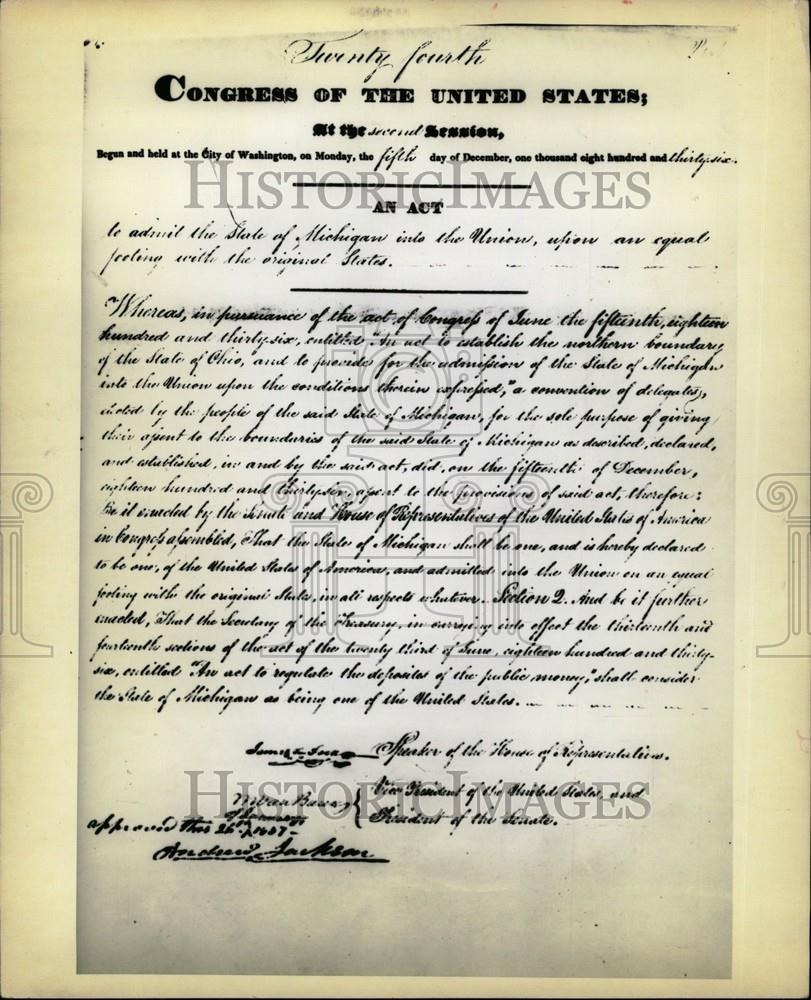 Twenty fourth
CONGRESS OF THE UNITED STATES;
At the second Session,
Begun and held at the City of Washington, on Monday, the fifth day of December, one thousand eight hundred and thirty-six.
HISTORICIMAGES
AN ACT
to admit the State of Michigan into the Union, upon an equal
footing with the original States.
Whereas, in pursuance of the act of Congress of June the fifteenth, eighteen
hundred and thirty-six, entitled "An act to establish the northern boundary
of the State of Ohio, and to provide for the admission of the State of Michigan
into the Union upon the conditions therein expressed," a convention of delegates,
elected by the people of the said State of Michigan, for the sole purpose of giving
their assent to the boundaries of the said State of Michigan as described, declared,
and established, in and by the said act, did, on the fifteenth of December,
eighteen hundred and thirty-six, assent to the provisions of said act, therefore:
Be it enacted by the Senate and House of Representatives of the United States of America
in Congress assembled, That the State of Michigan shall be one, and is hereby declared
to be one, of the United States of America, and admitted into the Union on an equal
footing with the original States, in all respects whatever. Section 2. And be it further
enacted, That the Secretary of the Treasury, in carrying into effect the thirteenth and
fourteenth sections of the act of the twenty third of June, eighteen hundred and thirty-
six, entitled "An act to regulate the deposites of the public money," shall consider
the State of Michigan as being one of the United States.
Speaker of the House of Representatives.
HISTORICIMAGES
M Van Buren
Vice President of the United States, and
President of the Senate.
approved this 26th of January 1837
Andrew Jackson